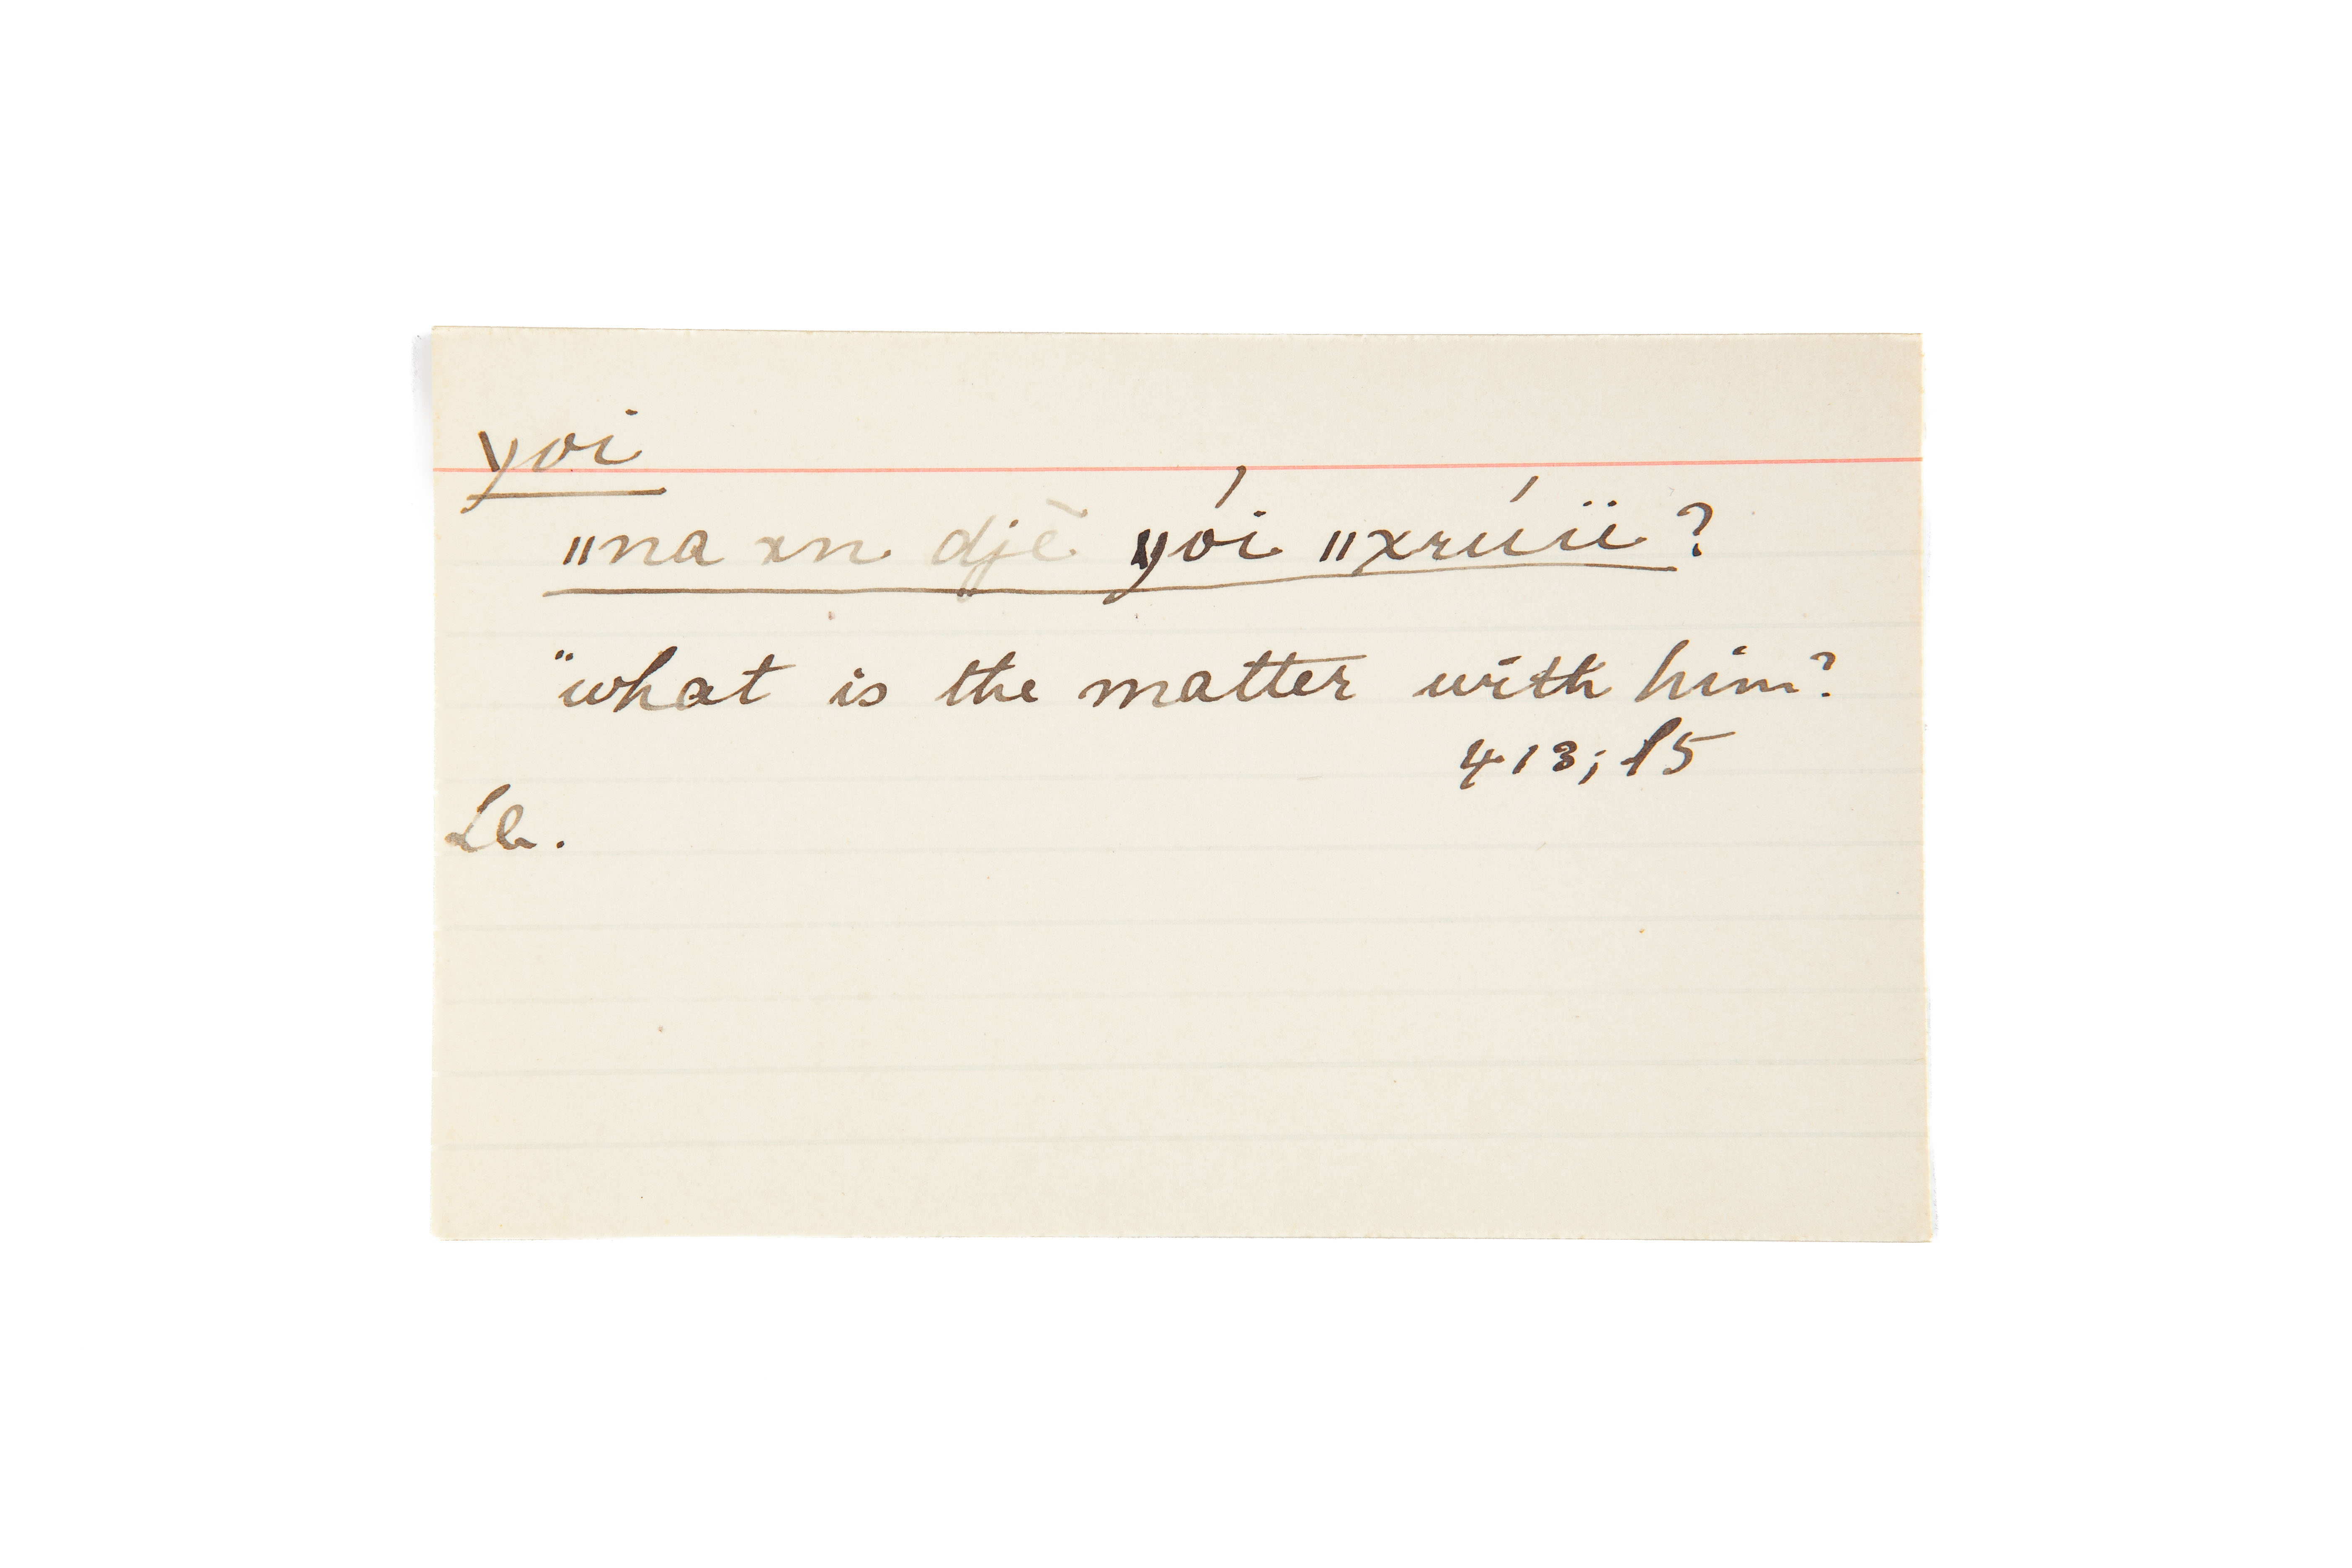 yoi
‖na xn djē yói ‖xrúïï?
"what is the matter with him?
413; 15
Lb.